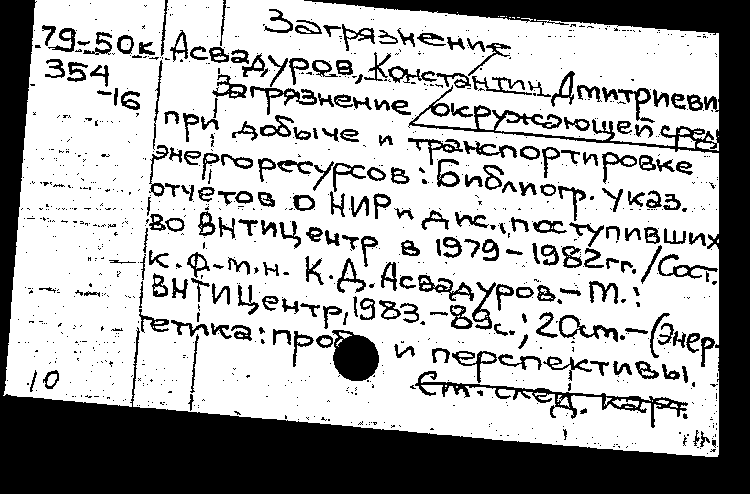 Загрязнение
79-50к Асвадуров, Константин Дмитриеви
354 Загрязнение окружающей сред
-16 при добыче и транспортировке
энергоресурсов: Библиогр. указ.
отчетов о НИР и дис., поступивших
во ВНТИЦентр в 1979-1982гг. / Сост.
к.ф-м.н. К.Д. Асвадуров. - М.:
ВНТИЦентр, 1983. - 89с.; 20см. - (Энер-
гетика: проб и перспективы.
См. след. карт.
10